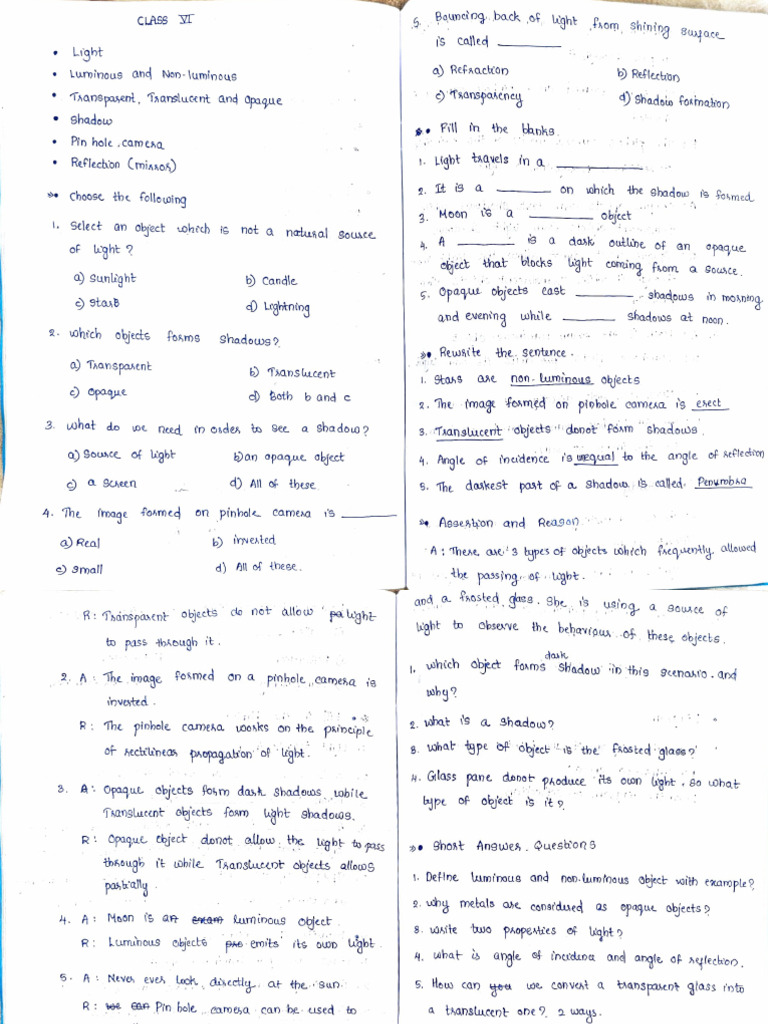 CLASS VI
• Light
• Luminous and Non-luminous
• Transparent, Translucent and Opaque
• Shadow
• Pin hole camera
• Reflection (mirror)
• Choose the following
1. Select an object which is not a natural source
of light?
a) Sunlight b) Candle
c) Stars d) Lightning
2. Which objects forms shadows?
a) Transparent b) Translucent
c) Opaque d) Both b and c
3. What do we need in order to see a shadow?
a) Source of light b) an opaque object
c) a screen d) All of these
4. The image formed on pinhole camera is ________
a) Real b) inverted
c) Small d) All of these.
5. Bouncing back of light from shining surface
is called ________
a) Refraction b) Reflection
c) Transparency d) Shadow formation
• Fill in the blanks.
1. Light travels in a ________
2. It is a ________ on which the shadow is formed
3. Moon is a ________ object
4. A ________ is a dark outline of an opaque
object that blocks light coming from a source.
5. Opaque objects cast ________ shadows in morning
and evening while ________ shadows at noon.
• Rewrite the sentence.
1. Stars are non-luminous objects
2. The image formed on pinhole camera is erect
3. Translucent objects donot form shadows.
4. Angle of incidence is unequal to the angle of reflection
5. The darkest part of a shadow is called Penumbra
• Assertion and Reason
A: There are 3 types of objects which frequently allowed
the passing of light.
R: Transparent objects do not allow light
to pass through it.
2. A: The image formed on a pinhole camera is
inverted.
R: The pinhole camera works on the principle
of rectilinear propagation of light.
3. A: Opaque objects form dark shadows while
Translucent objects form light shadows.
R: Opaque object donot allow the light to pass
through it while Translucent objects allows
partially.
4. A: Moon is a luminous object.
R: Luminous objects emits its own light.
5. A: Never ever look directly at the sun.
R: Pin hole camera can be used to
and a frosted glass. She is using a source of
light to observe the behaviour of these objects.
1. which object forms dark shadow in this scenario. and
why?
2. what is a shadow?
3. what type of object is the frosted glass?
4. Glass pane donot produce its own light. so what
type of object is it?
• Short Answer Questions
1. Define luminous and non-luminous object with example?
2. why metals are considered as opaque objects?
3. write two properties of light?
4. what is angle of incidence and angle of reflection.
5. How can we convert a transparent glass into
a translucent one? 2 ways.